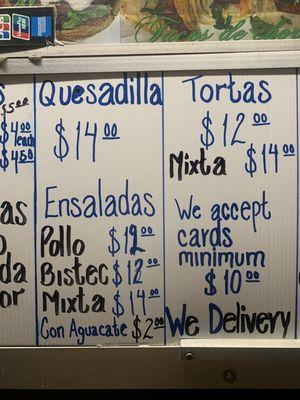 Tacos de
$5.00
$4.00
each
$4.50
as
da
or
Quesadilla
$14.00
Ensaladas
Pollo $12.00
Bistec $12.00
Mixta $14.00
Con Aguacate $2.00
Tortas
$12.00
Mixta $14.00
We accept
cards
minimum
$10.00
We Delivery